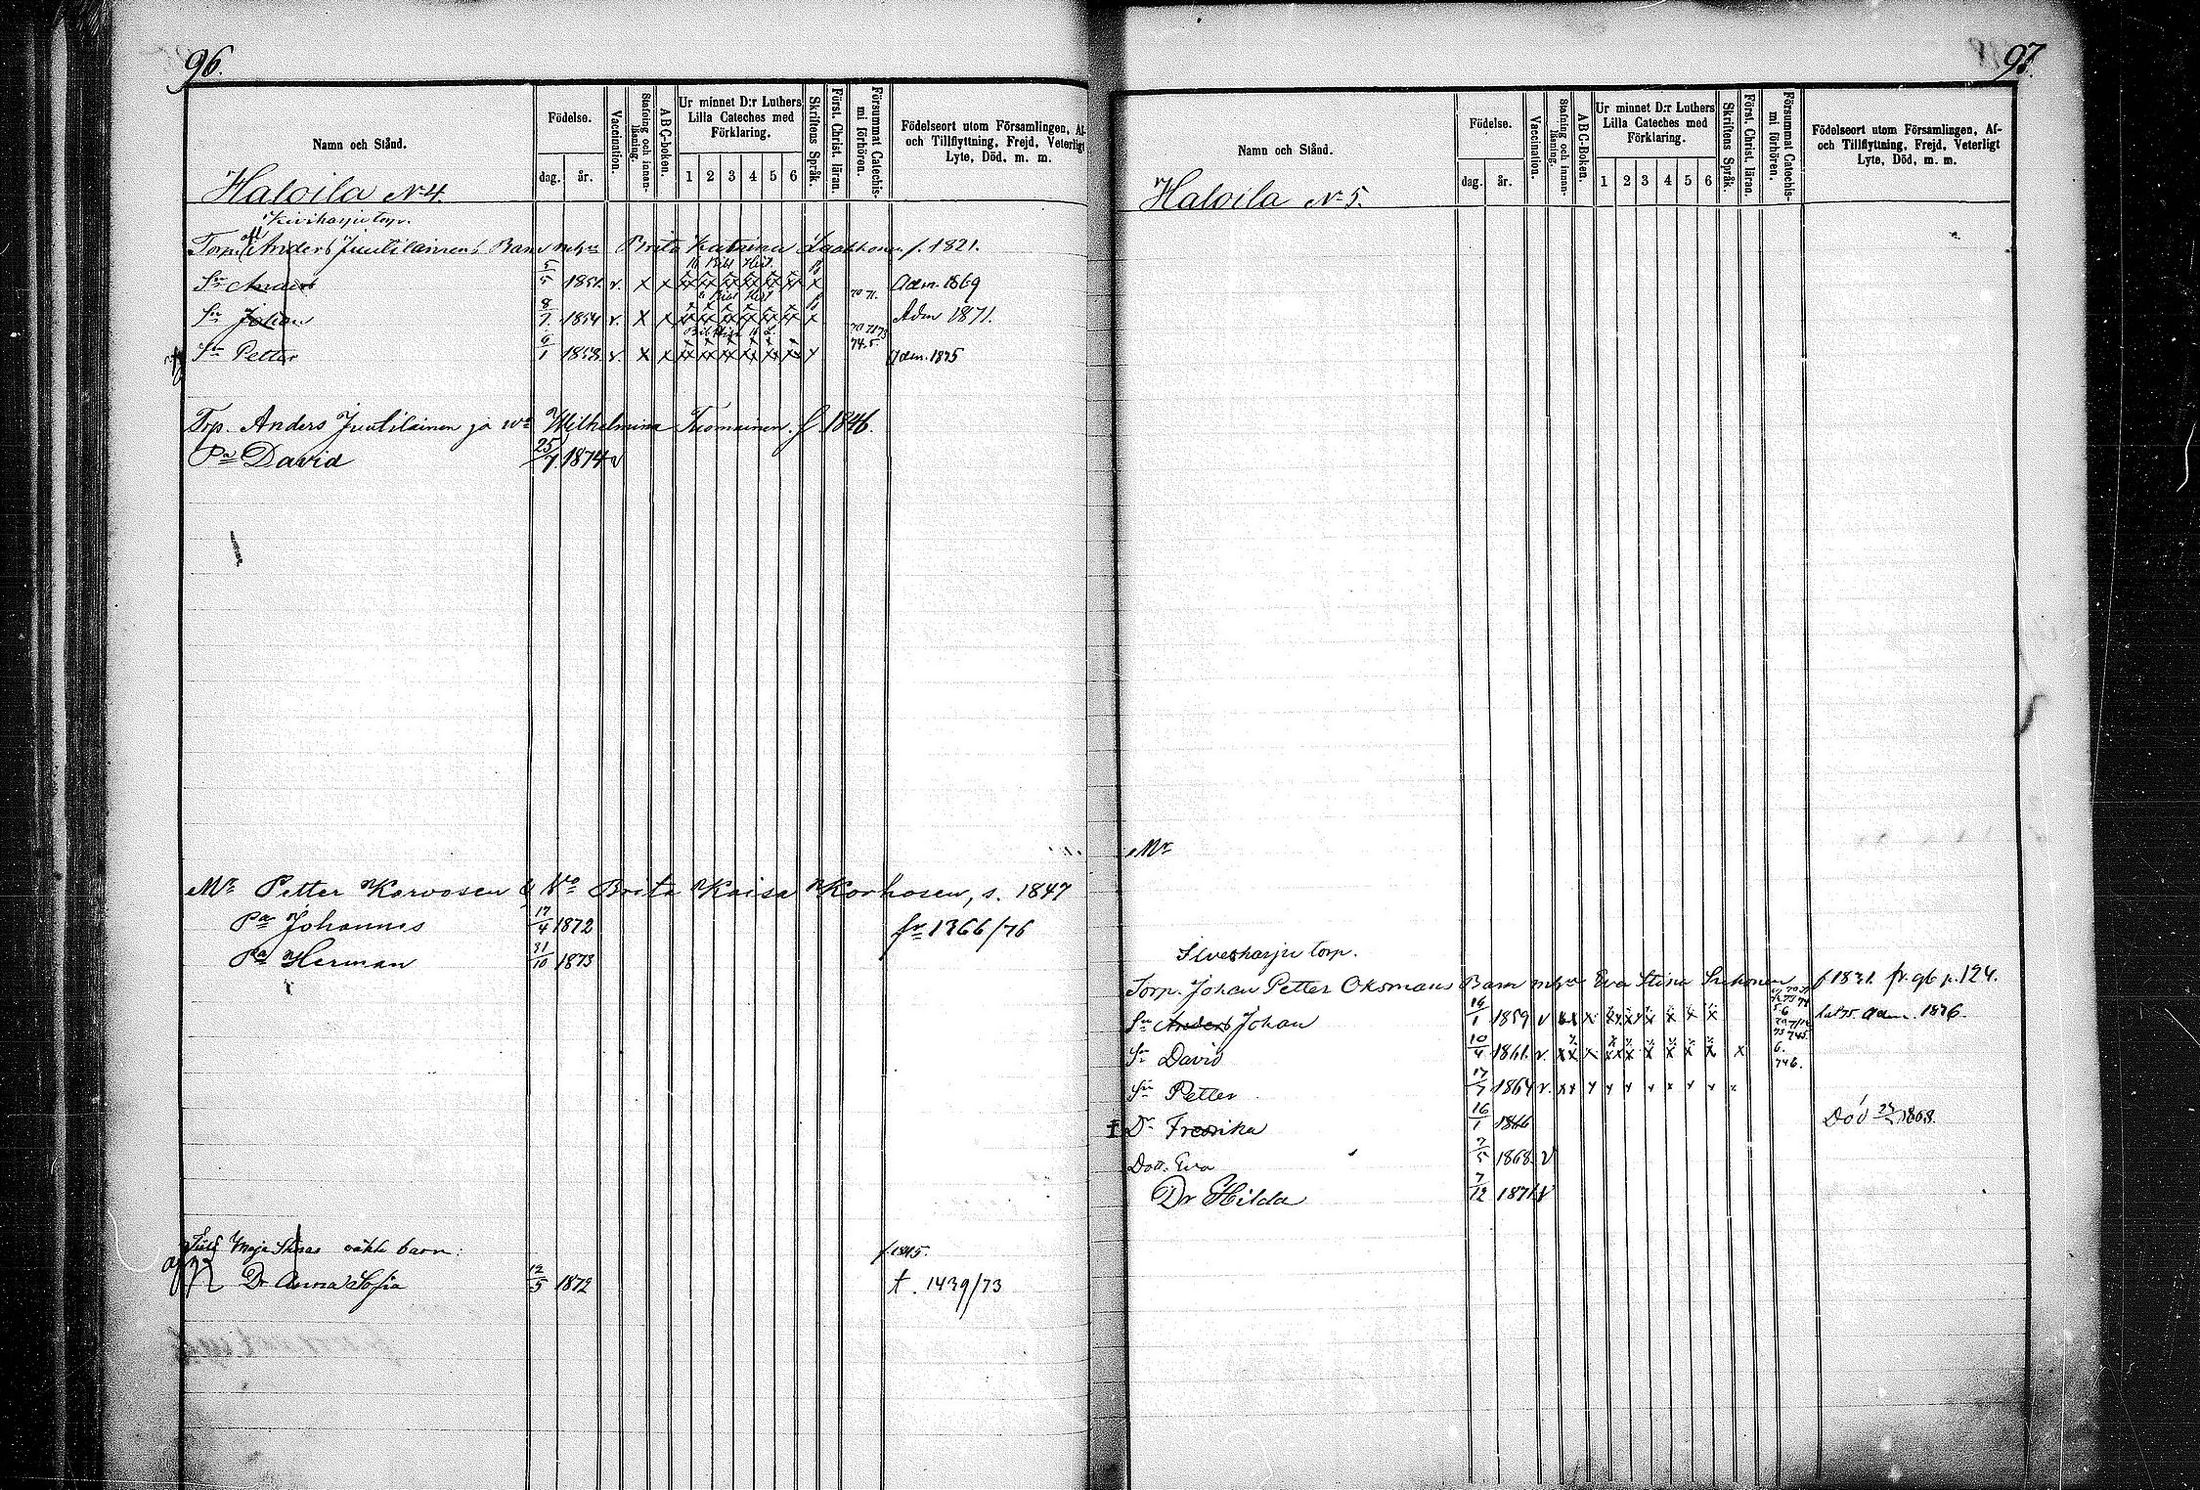 96.
Namn och Stånd.
Födelse.
dag.
år.
Vaccination.
Stafning och innan-
läsning.
ABC-boken.
Ur minnet D:r Luthers
Lilla Cateches med
Förklaring.
1 2 3 4 5 6
Skriftens Språk.
Först. Christ. läran.
Försummat Catechis-
mi förhören.
Födelseort utom Församlingen, Af-
och Tillflyttning, Frejd, Veterligt
Lyte, Död, m. m.
Haloila N 4.
Kiviharju torp.
Torp. Anders Juutilainens Barn m. h. Brita Katrina f. 1821.
Sn Anders 5/5 1851. v. x x Bibl Hist. x Adm. 1869
Sn Johan 8/7 1854 v. x x Bibl Hist x 70 71. Adm 1871.
Sn Petter 6/1 1858. v. x x x 74.5 Adm. 1875
Torp. Anders Juutilainen ja wa Wilhelmina Tuomainen. f 1846.
Pa David 25/7 1874 v
Mn Petter Korvosen & Va Brita Kaisa Korhosen, s. 1847
Pa Johannes 17/4 1872 fr 1366/76
Pa Herman 31/10 1873
Maja Stinas oäkta barn: f. 1845.
Dr Anna Sofia 12/5 1872 t. 1439/73
97.
Namn och Stånd.
Födelse.
dag.
år.
Vaccination.
Stafning och innan-
läsning.
ABC-Boken.
Ur minnet D:r Luthers
Lilla Cateches med
Förklaring.
1 2 3 4 5 6
Skriftens Språk.
Först. Christ. läran.
Försummat Catechis-
mi förhören.
Födelseort utom Församlingen, Af-
och Tillflyttning, Frejd, Veterligt
Lyte, Död, m. m.
Haloila N 5.
Mn
Silvesharju torp.
Torp. Johan Petter Oksmans Barn m. h. Eva Stina f 1831. fr. gb p. 124.
Sn Anders Johan 16/1 1859 v x x x x x x x x adm. 1876.
Sn David 10/4 1861. v. x x x x x x x x x x 746.
Sn Petter 17/7 1864 v. x x x x x x x x x x
Dr Fredrika 16/1 1866 Död 1868.
Dott. Eva 2/5 1868. v
Dr Hilda 7/12 1871 v